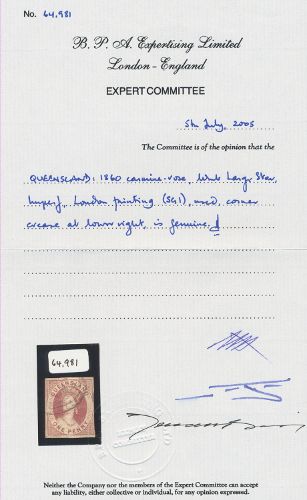 No. 64,981
B. P. A. Expertising Limited
London - England
EXPERT COMMITTEE
5th July, 2005
The Committee is of the opinion that the
QUEENSLAND: 1860 carmine-rose, Wmk Large Star,
Imperf, London printing (SG1), used, corner
crease at lower right, is genuine.
64,981
QUEENSLAND
ONE PENNY
Neither the Company nor the members of the Expert Committee can accept
any liability, either collective or individual, for any opinion expressed.